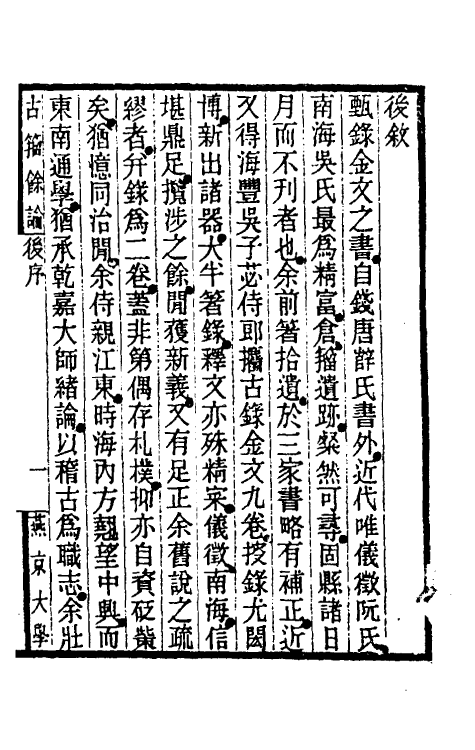 後敘
甄錄金文之書自錢唐薛氏書外近代唯儀徵阮氏
南海吳氏最爲精富倉籀遺跡粲然可尋固縣諸日
月而不刋者也余前箸拾遺於三家書略有補正近
又得海豐吳子苾侍郎攈古錄金文九卷挍錄尤閎
博新出諸器大半箸錄釋文亦殊精宷儀徵南海信
堪鼎足㩜涉之餘閒獲新義又有足正余舊說之疏
繆者幷錄爲二卷蓋非第偶存札樸抑亦自資砭鍼
矣猶憶同治閒余侍親江東時海內方翹望中興而
東南通學猶承乾嘉大師緒論以稽古爲職志余壯
古籀餘論 後序 一 燕京大學